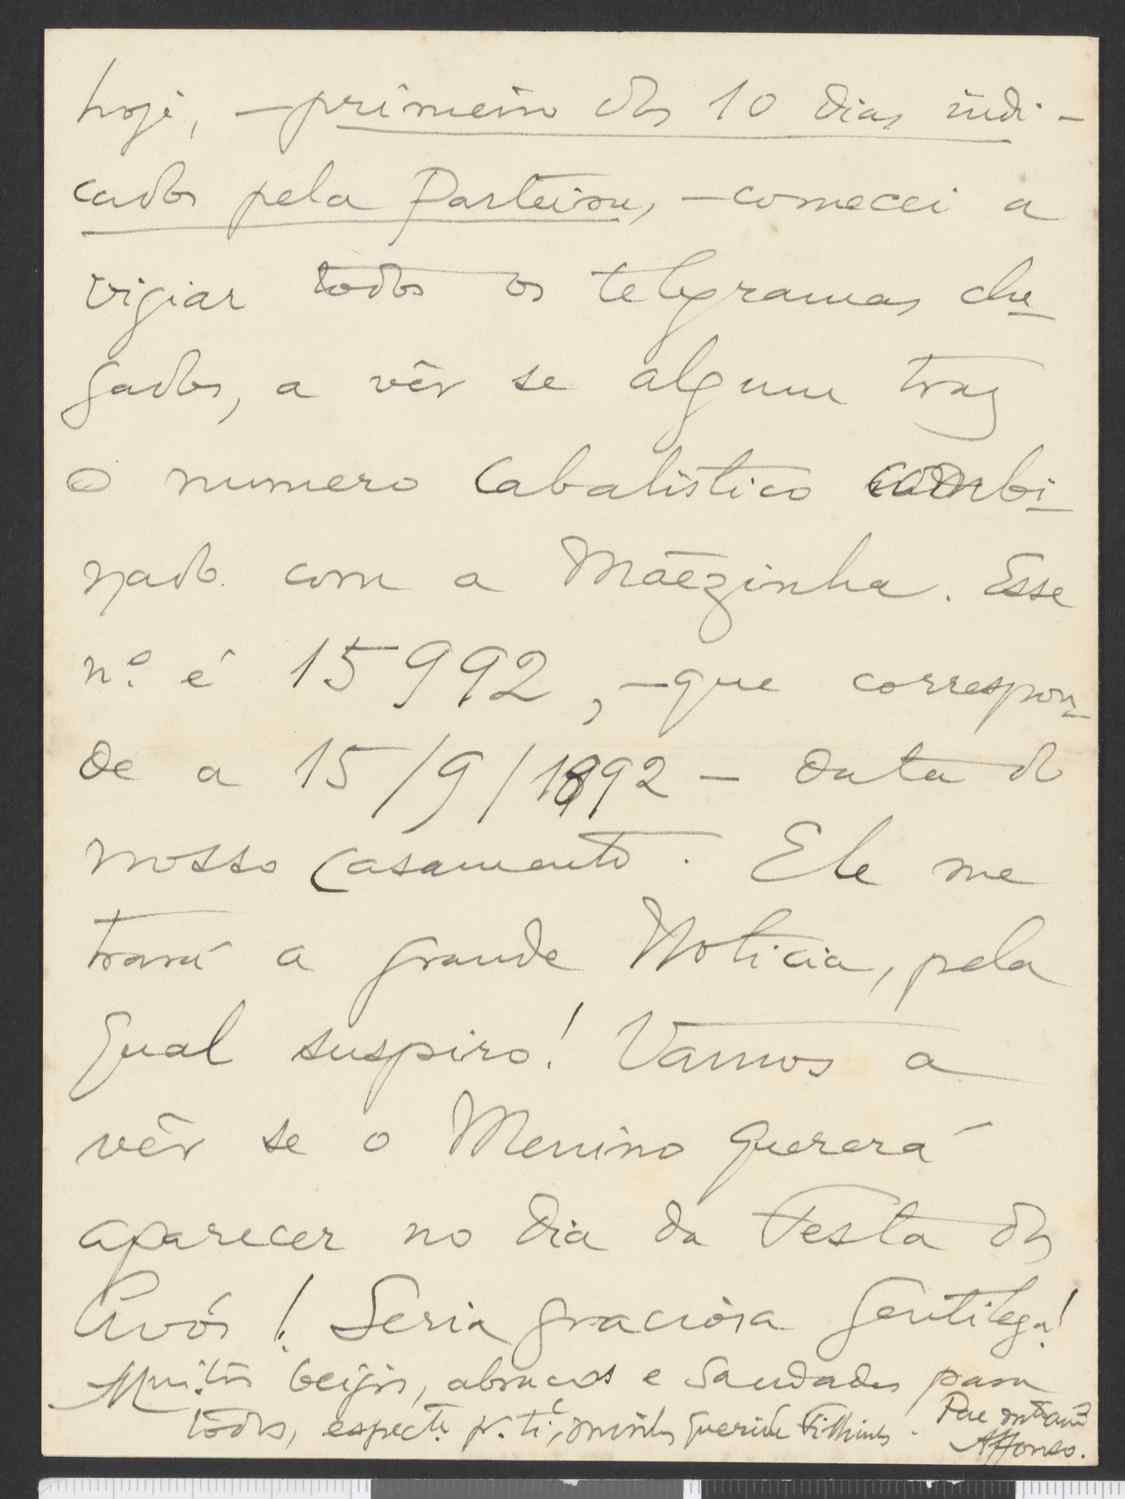 hoje, – primeiro dos 10 dias indi-
cados pela Parteira, – comecei a
vigiar todos os telegramas che-
gados, a vêr se algum traz
o numero cabalistico combi-
nado com a Mãezinha. Esse
nº. é 15992, – que correspon-
de a 15/9/1892 – data do
nosso casamento. Ele me
trará a grande Noticia, pela
qual suspiro! Vamos a
vêr se o Menino quererá
aparecer no dia da Festa dos
Avós! Seria graciosa gentileza!
Muitos beijos, abraços e saudades para
todos, especte. pr. ti, minha querida Filhinha. Pae
Affonso.